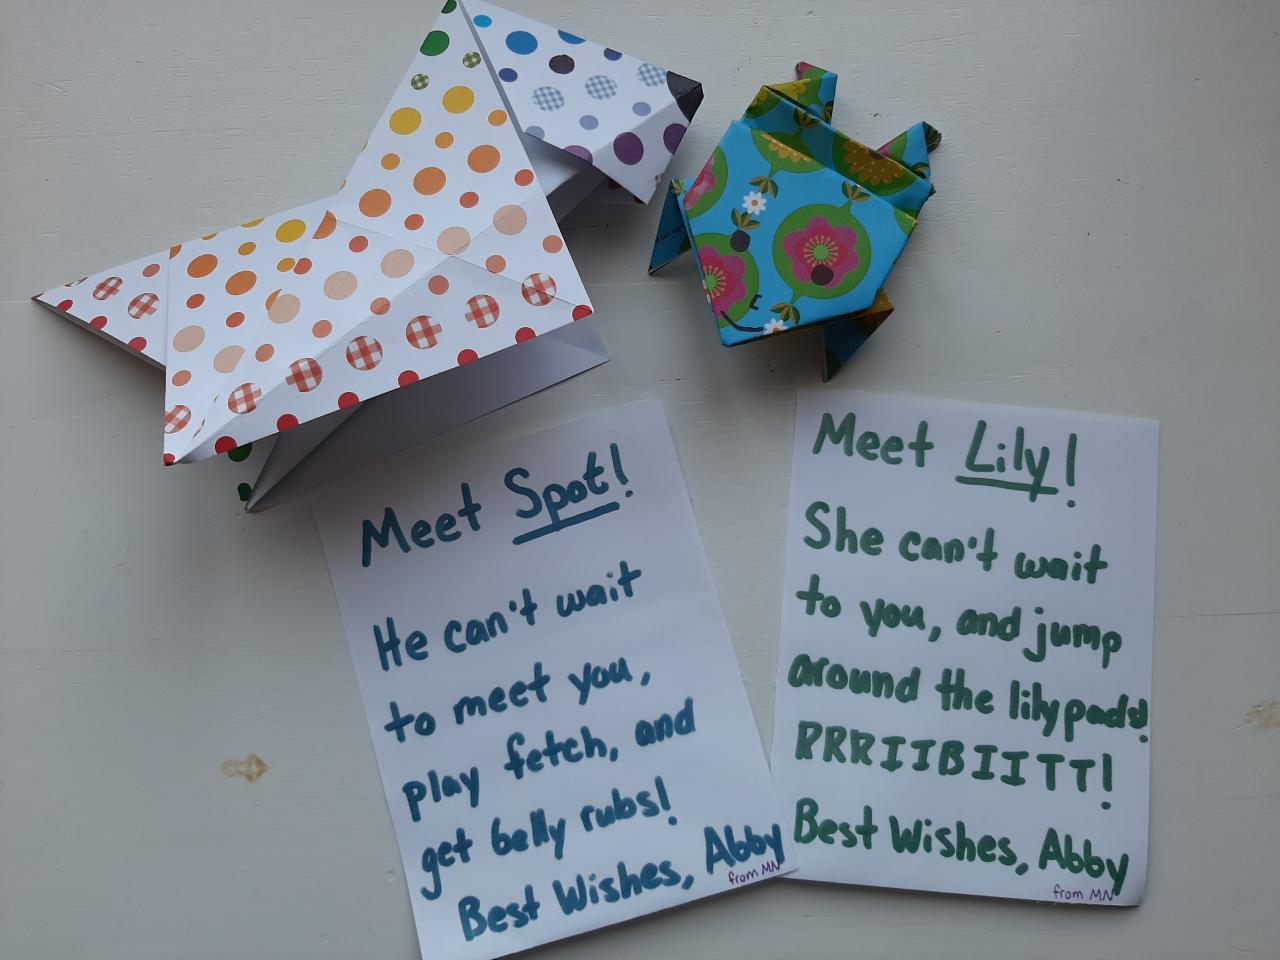 Meet Spot!
He can't wait
to meet you,
play fetch, and
get belly rubs!
Best Wishes, Abby
from MN
Meet Lily!
She can't wait
to you, and jump
around the lilypads!
RRRIIBIITT!
Best Wishes, Abby
from MN